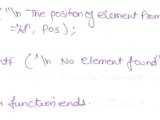 ("\n The position of element from
=%d", Pos);
ntf ("\n No element found"
function ends.